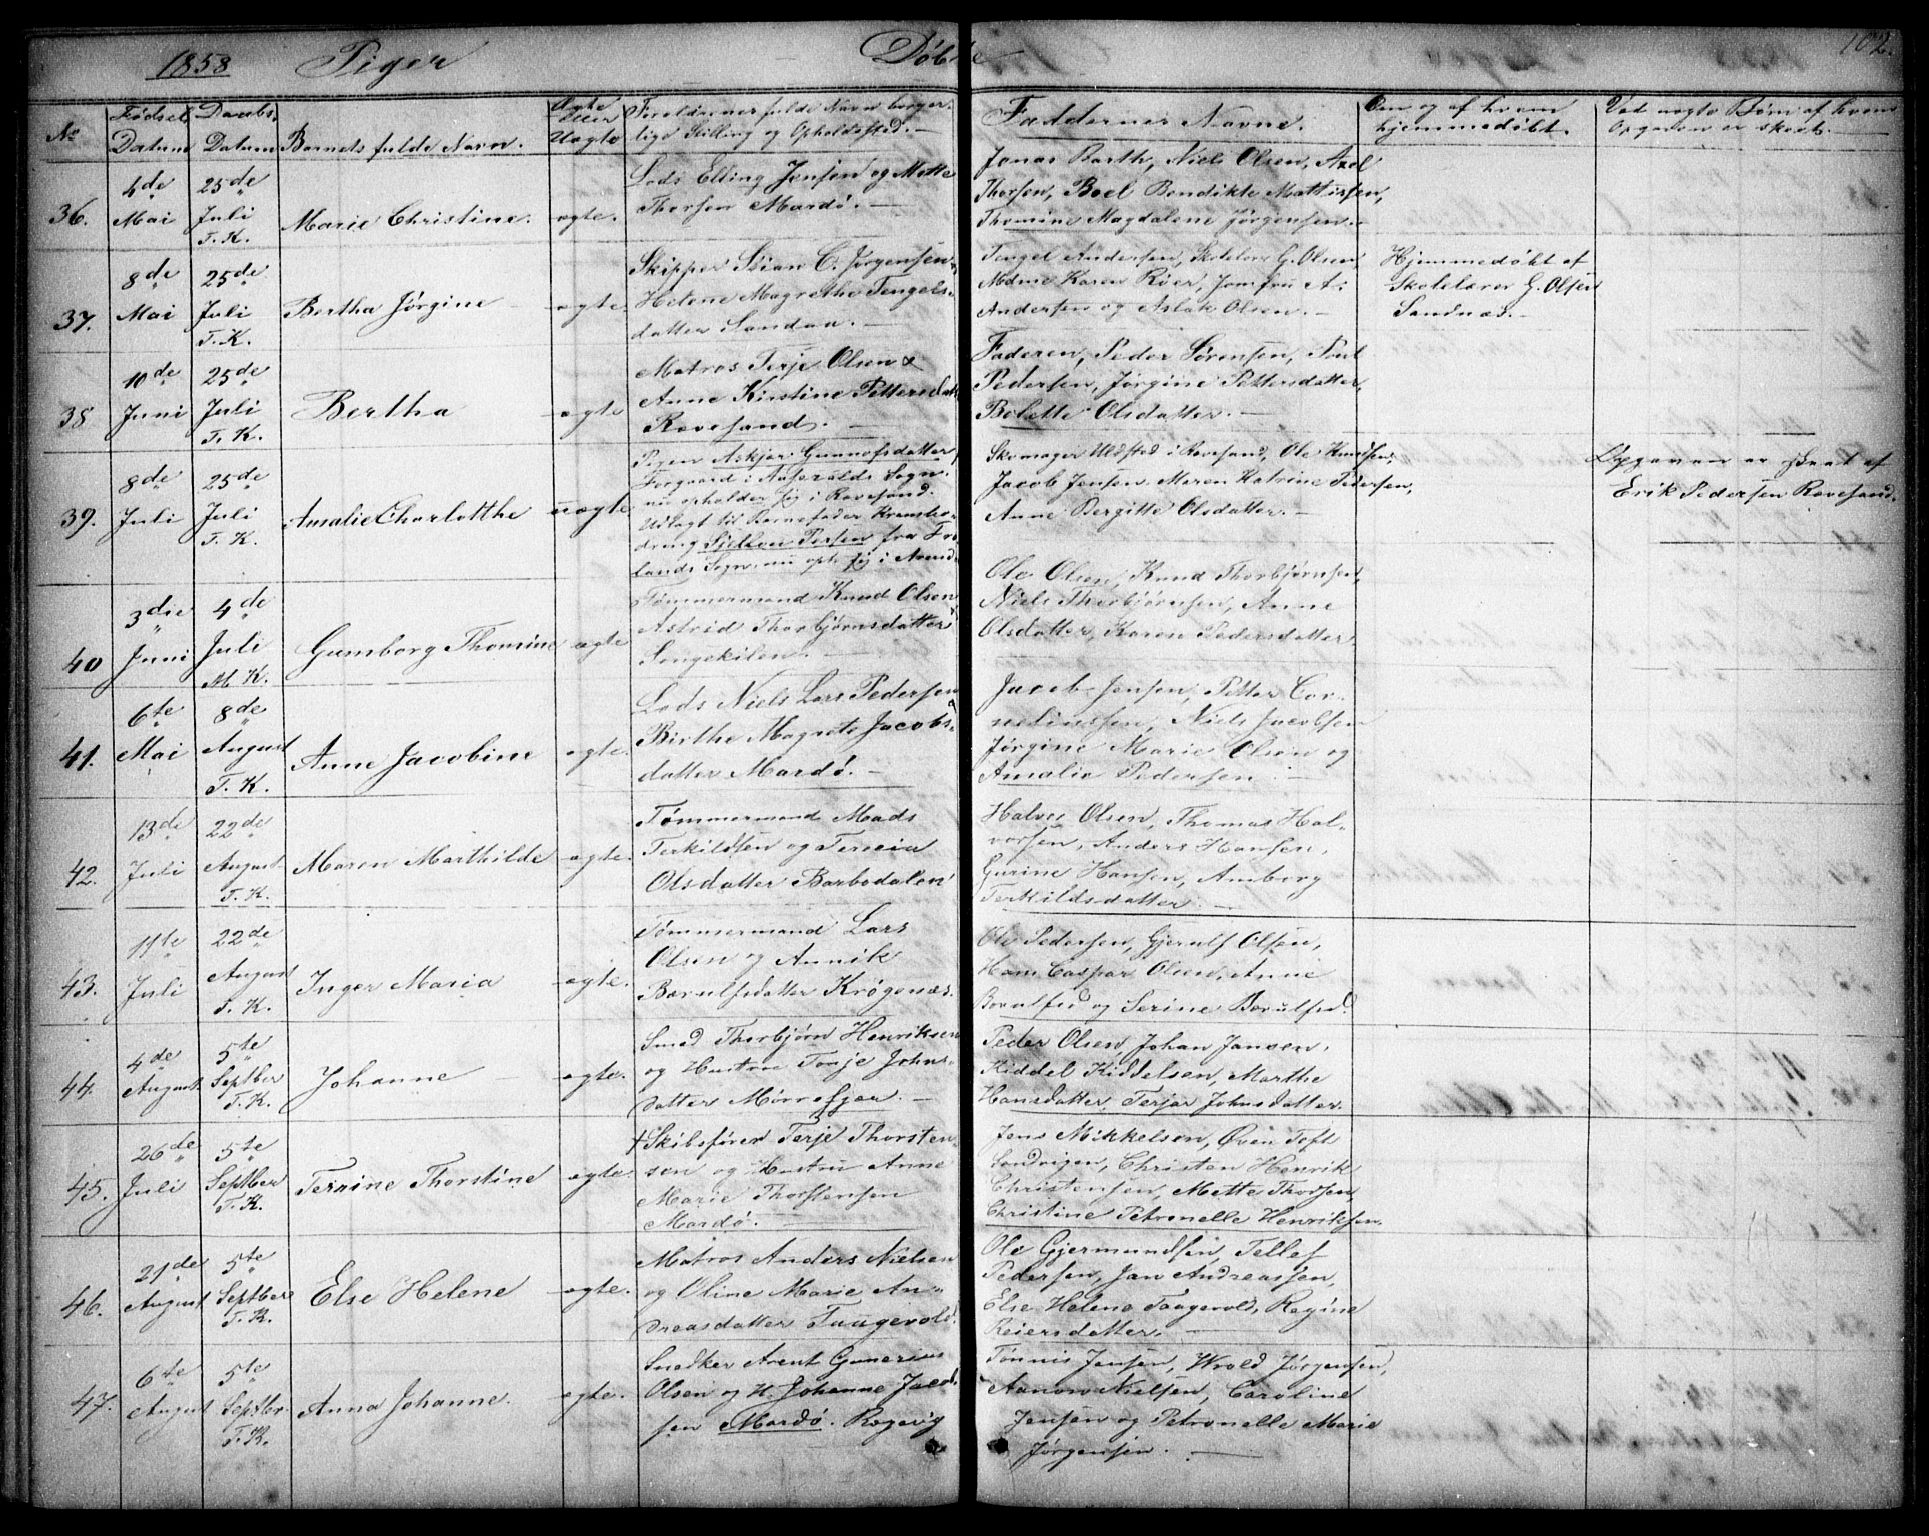 1858 Piger Døbte 102.
No
Fødsels Datum
Daabs Datum
Barnets fulde Navn.
Ægte eller Uægte
Forældrenes fulde Navn borger-
lige Stilling og Opholdssted. —
Faddernes Navne.
Om og af hvem
hjemmedøbt.
Ved uægte Børn af hvem
Opgaven er skeet. —
36.
4de Mai
25de Juli T. K.
Marie Christine.
ægte.
Lods Elling Jensen og Mette
Thorsen Mardø. —
Jonas Barth, Niels Olsen, Axel
Thorsen, Boel Bendikte Mattissen,
Thomine Magdalene Jørgensen. —
37.
8de Mai
25de Juli T. K.
Bertha Jørgine
ægte.
Skipper Stian C. Jørgensen
Helene Magrethe Tengels-
datter Sandaa. —
Tengel Andersen, Skolelærer G. Olsen,
Mdme Karen Röer, Jomfru A.
Andersen og Aslak Olsen. —
Hjemmedøbt af
Skolelærer G. Olsen
Sandnæs. —
38
10de Juni
25de Juli T. K.
Bertha
ægte
Matros Terje Olsen &
Anne Kirstine Pettersdatt
Revesand. —
Faderen, Peder Sørensen, Poul
Pedersen, Jørgine Pettersdatter,
Bolette Olsdatter. —
39.
8de Juli
25de Juli T. K.
Amalie Charlotthe
uægte
Pigen Askjer Gunnofsdatter,
i Sogn.
nu opholder sig i Revesand.
Udlagt til Barnefader
Persen fra Fro-
lands Sogn, nu oph. sig i Arendal
Skomager Uldsted i Revesand, Ole Knudsen,
Jacob Jensen, Maren Katrine Pedersen,
Anne Bergitte Olsdatter. —
Opgaven er skeet af
Erik Pedersen Revesand.
40
3die Juni
4de Juli M. K.
Gumborg Thomine
ægte
Tømmermand Knud Olsen
Astrid Thorbjørnsdatter
Songekilen. —
Ole Olsen, Knud Thorbjørnsen,
Niels Thorbjørnsen, Anne
Olsdatter, Karen Pedersdatter
41.
6te Mai
8de August T. K.
Anne Jacobine
ægte.
Lods Niels Lars Pedersen
Birthe Magrete Jacobs-
datter Mardø. —
Jacob Jensen, Petter Cor-
neliussen, Niels Jacobsen
Jørgine Marie Olsen og
Amalie Pedersen. —
42.
13de Juli
22de August T. K.
Maren Marthilde
ægte.
Tømmermand Mads
Terkildsen og Terecia
Olsdatter Barbodalen
Halvor Olsen, Thomas Hal-
vorsen, Anders Hansen,
Gurine Hansen, Amborg
Terkildsdatter. —
43.
11te Juli
22de August T. K.
Inger Maria
ægte.
Tømmermand Lars
Olsen og Annik
Berulfsdatter Krøgenæs.
Ole Pedersen, Gjerulf Olsen,
Hans Caspar Olsen, Anne
Berulfsd og Serine Berulfsd.
44.
4de August
5te Septber T. K.
Johanne
ægte.
Smed Thorbjørn Henriksen
og Hustru Tonje Johns-
datter Mørrefjær. —
Peder Olsen, Johan Jansen,
Kiddel Kiddelsen, Marthe
Hansdatter, Terjer Johnsdatter.
45.
26de Juli
5te Septber T. K.
Terrine Thorstine
ægte.
+Skibsfører Terje Thorsten-
sen og Hustru Anne
Marie Thorstensen
Mardø. —
Jens Mikkelsen, Øven Toft
Sandvigen, Christen Henrik
Christensen, Mette Thorsen,
Christine Petronelle Henriksen.
46.
21de August
5te Septbere T. K.
Else Helene
ægte.
Matros Anders Nielsen
og Oline Marie An-
dreasdatter Faugevold.
Ole Gjermundsen, Tellef
Pedersen, Jan Andreassen,
Else Helene Faagevold, Regine
Reiersdatter. —
47.
6te August
5te Septbr. T. K.
Anna Johanne.
ægte.
Snedker Arent Gunerius
Olsen og H. Johanne Jacob-
sen Mardø. Rægevig
Tønnis Jensen, Wrold Jørgensen,
Aanon Nielsen, Caroline
Jensen og Petronelle Marie
Jørgensen. —